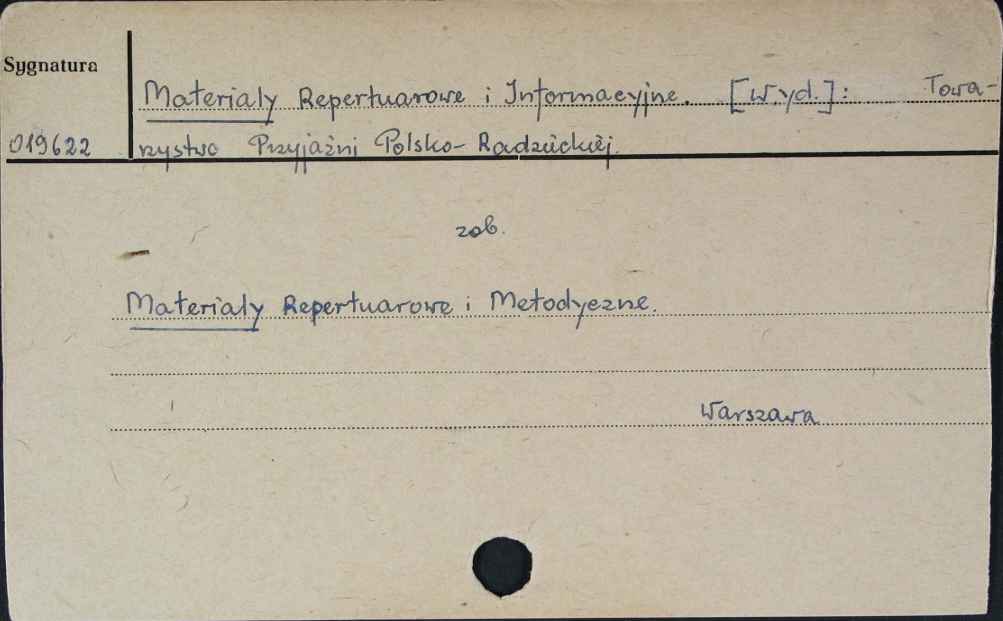 Sygnatura
Materiały Repertuarowe i Informacyjne. [Wyd.]: Towa-
019622 rzystwo Przyjaźni Polsko-Radzieckiej.
zob.
Materiały Repertuarowe i Metodyczne.
Warszawa